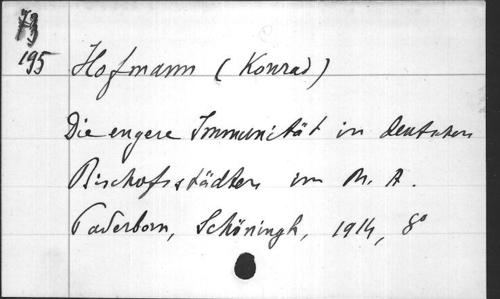 195
Hofmann (Konrad)
Die engere Immunität in deutschen
Bischofsstädten im M. A.
Paderborn, Schöningh, 1914, 8°